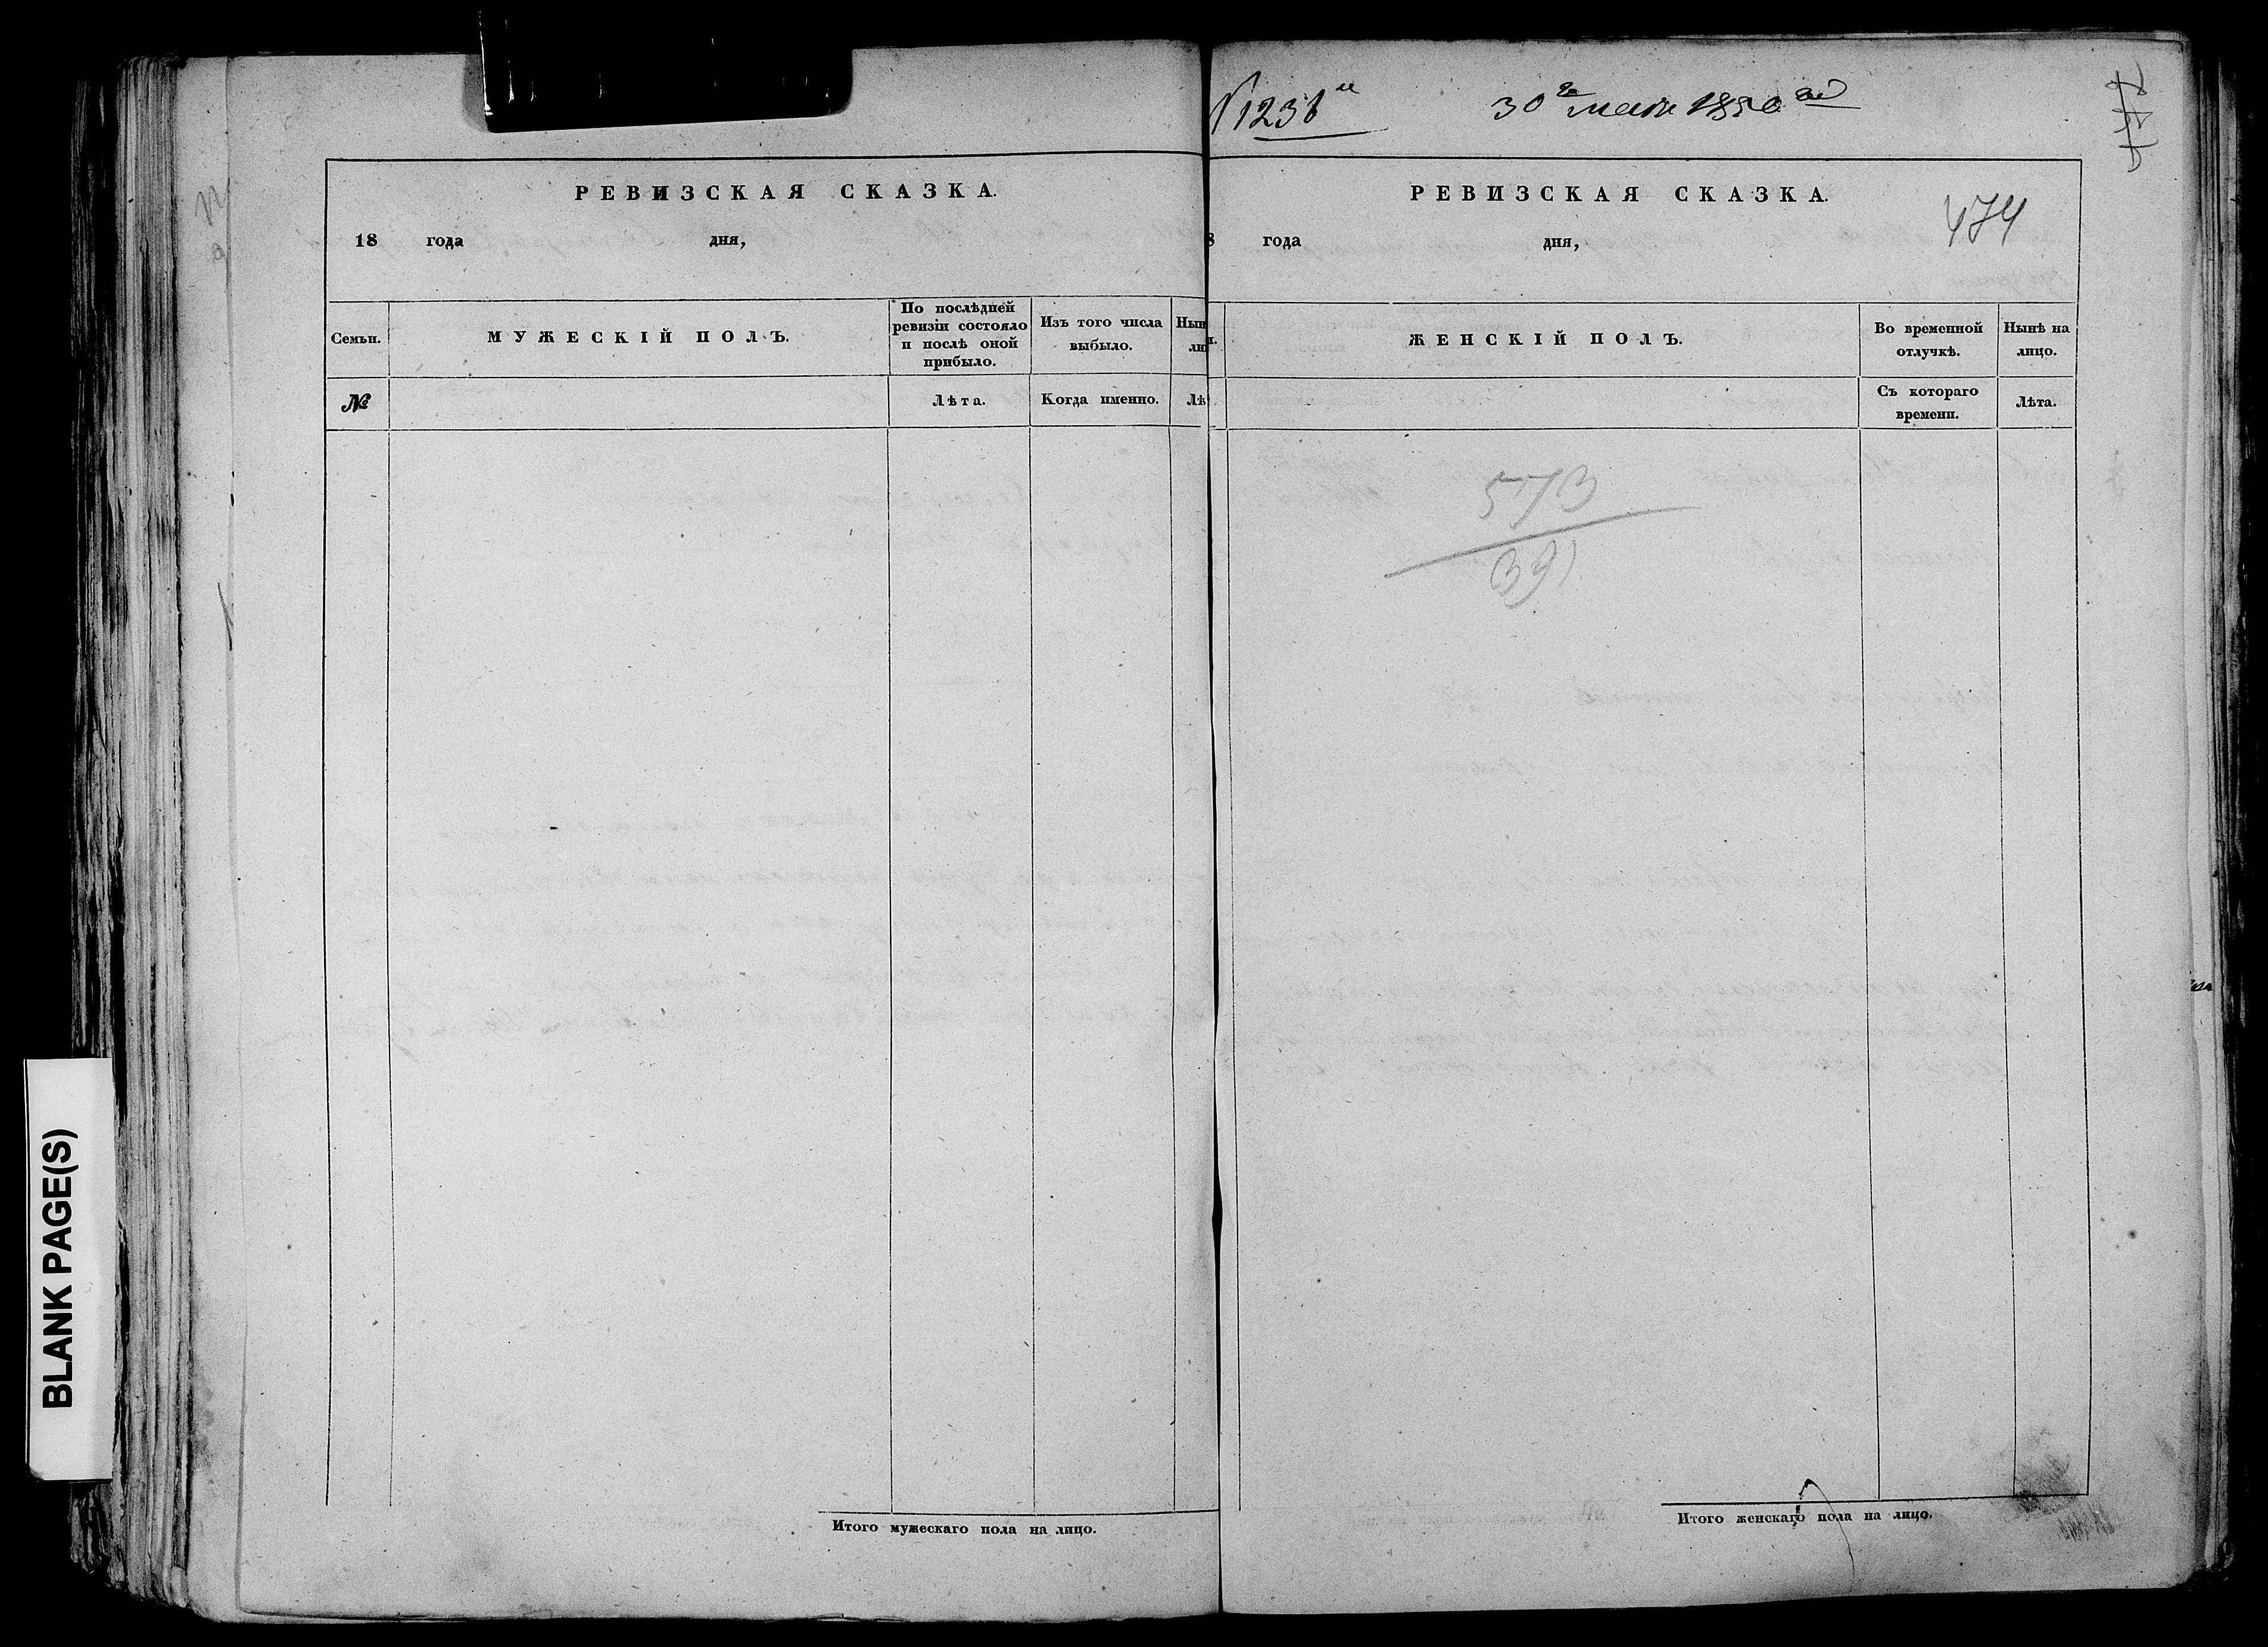 РЕВИЗСКАЯ СКАЗКА.
18 года дня,
Семьи.
МУЖЕСКІЙ ПОЛЪ.
По послѣдней
ревизіи состояло
и послѣ оной
прибыло.
Изъ того числа
выбыло.
Нын
ли
№
Лѣта.
Когда именно.
Лѣ
Итого мужескаго пола на лицо.
30го мая 1850го
474
РЕВИЗСКАЯ СКАЗКА.
8 года дня,
ЖЕНСКІЙ ПОЛЪ.
Во временной
отлучкѣ.
Нынѣ на
лицо.
Съ котораго
времени.
Лѣта.
573
391
Итого женскаго пола на лицо.
BLANK PAGE(S)